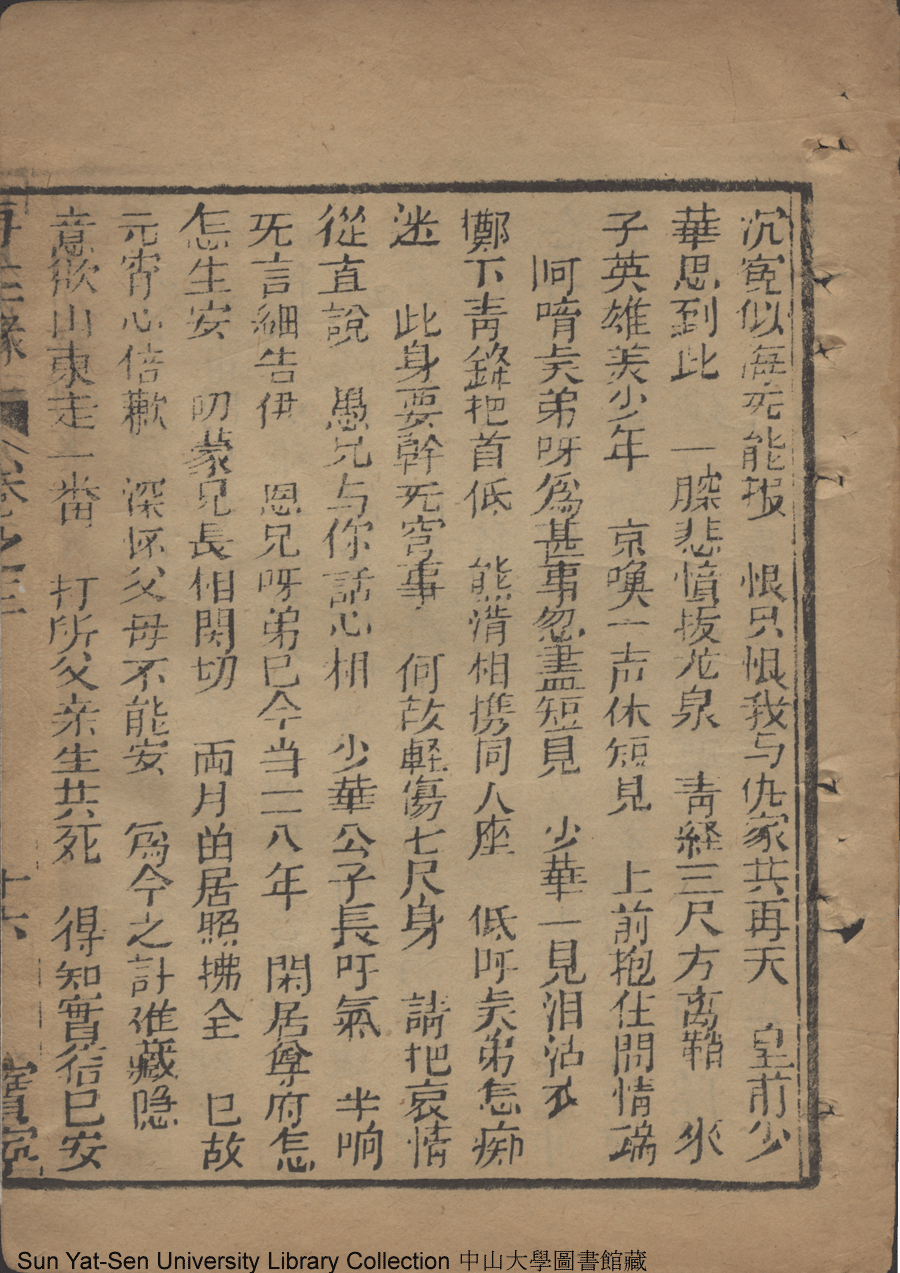 沉寃似海无能报 恨只恨我与仇家共再天 皇前少
華思到此 一腔悲憤拔龙泉 青経三尺方离鞘 來
子英雄美少年 京喚一声休短見 上前抱住問情端
呵唷矣弟呀爲甚事忽盡短見 少華一見泪沾衣
擲下青鋒把首低 熊清相携同人座 低呼矣弟怎痴
迷 此身要幹无穹事 何故軽傷七尺身 請把哀情
從直說 愚兄与你話心相 少華公子長吁氣 半响
旡言細告伊 恩兄呀弟已今当二八年 閑居尊府怎
怎生安 叨蒙兄長相関切 両月畄居照拂全 已故
元宵心倍歉 深怀父母不能安 爲今之計惟藏隐
意欲山東走一畨 打所父亲生共死 得知實信巳安
再生緣 卷之三 十六